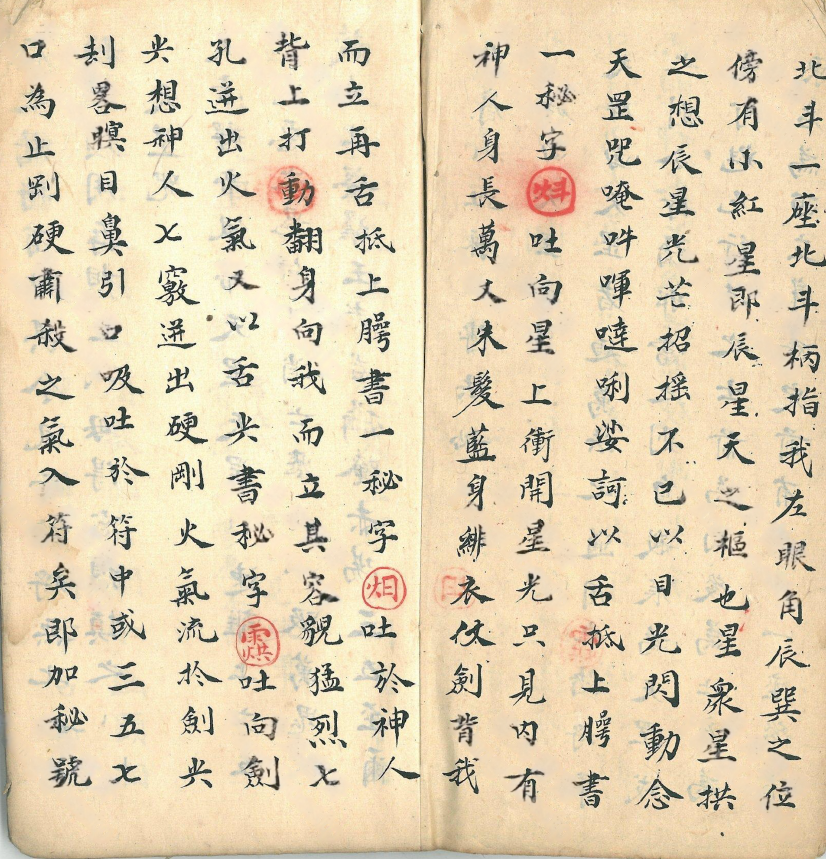 北斗一座北斗柄指我左眼角辰巽之位
傍有小紅星即辰星天之樞也星衆星拱
之想辰星光芒招摇不已以目光閃動念
天罡咒唵吽㖶噠唎娑訶以舌抵上腭書
一秘字㶨吐向星上衝開星光只見内有
神人身長萬丈朱髮藍身緋衣仗劍背我
而立再舌抵上腭書一秘字吐於神人
背上打動翻身向我而立其容貌猛烈七
孔迸出火氣又以舌尖書秘字吐向劍
尖想神人七竅迸出硬剛火氣流於劍尖
刦畧瞑目鼻引口吸吐於符中或三五七
口為止剛硬肅殺之氣入符矣即加秘號